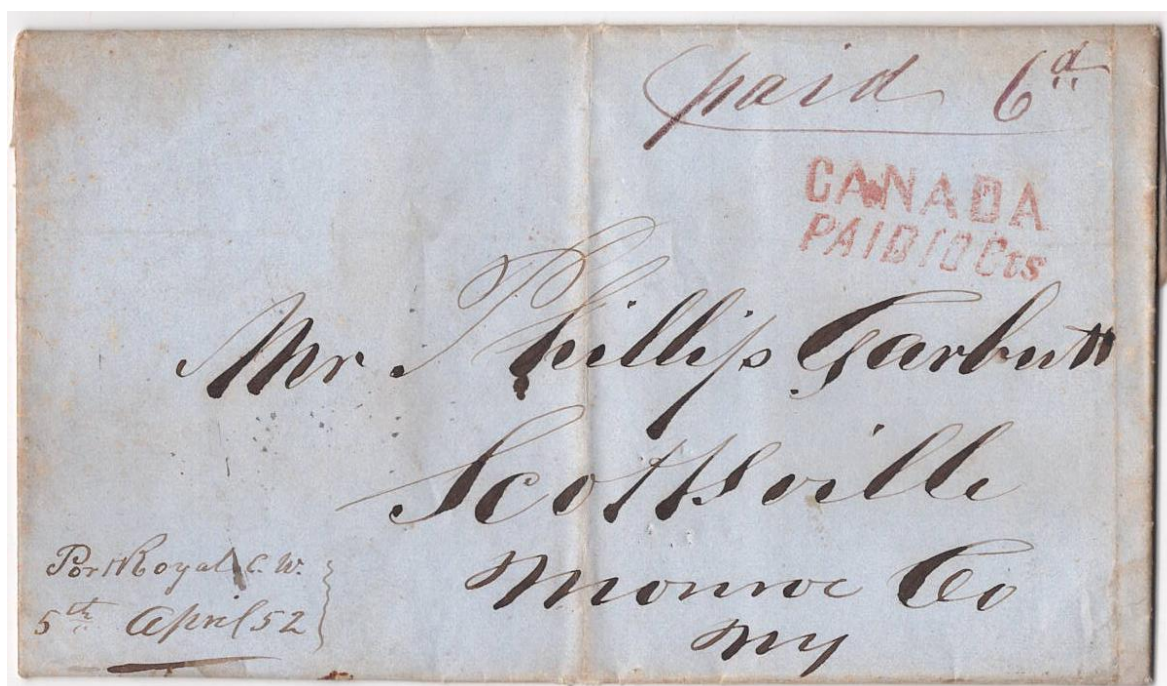 paid 6d
CANADA
PAID 10 Cts
Mr Phillip Garbutt
Scottsville
Monroe Co
NY
Port Royal C.W.
5th April 52